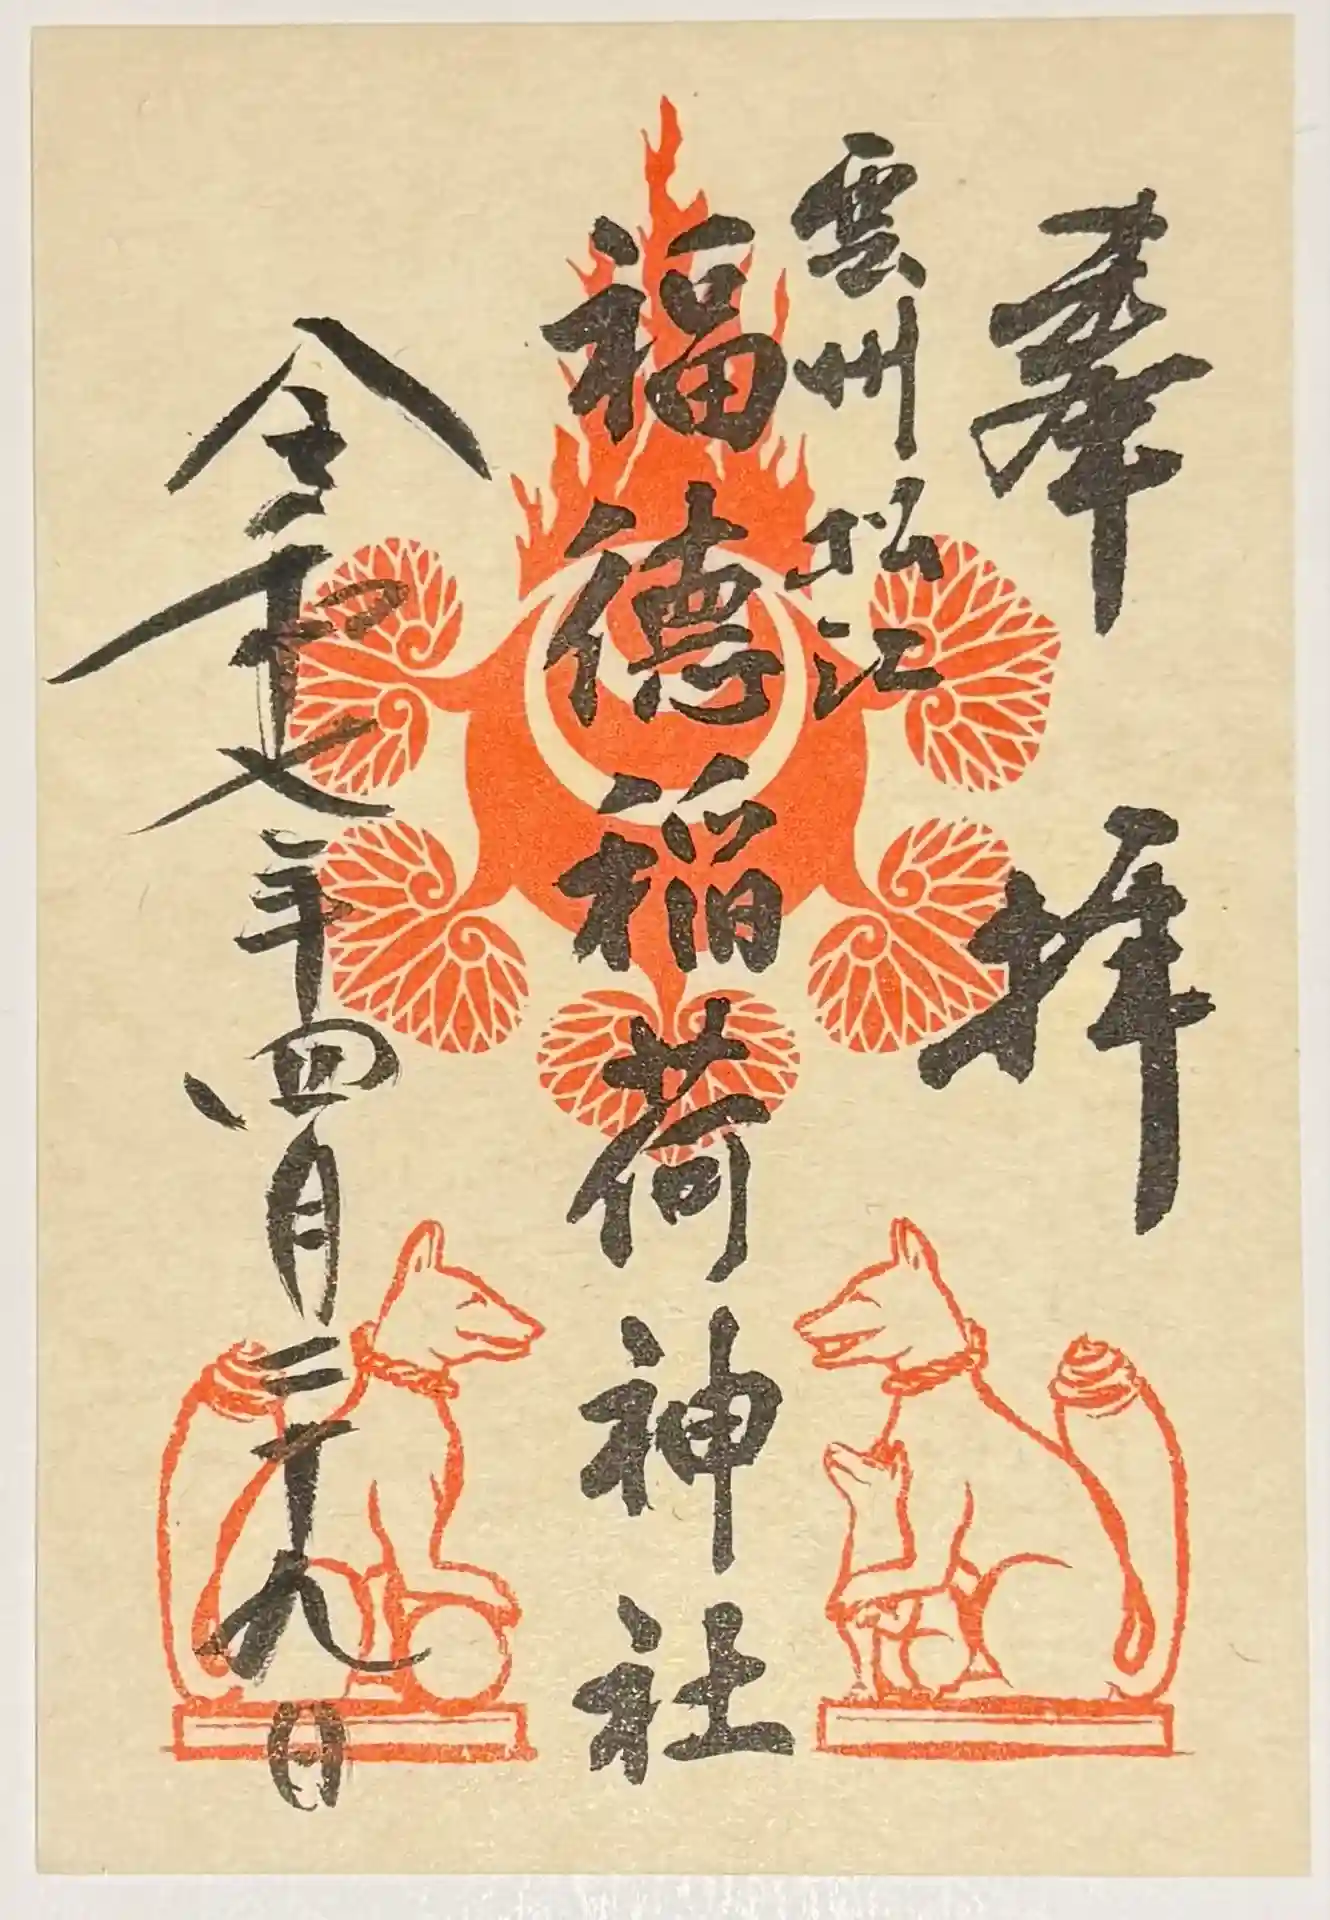 奉拝
雲州松江
福徳稲荷神社
令和七年四月二十九日